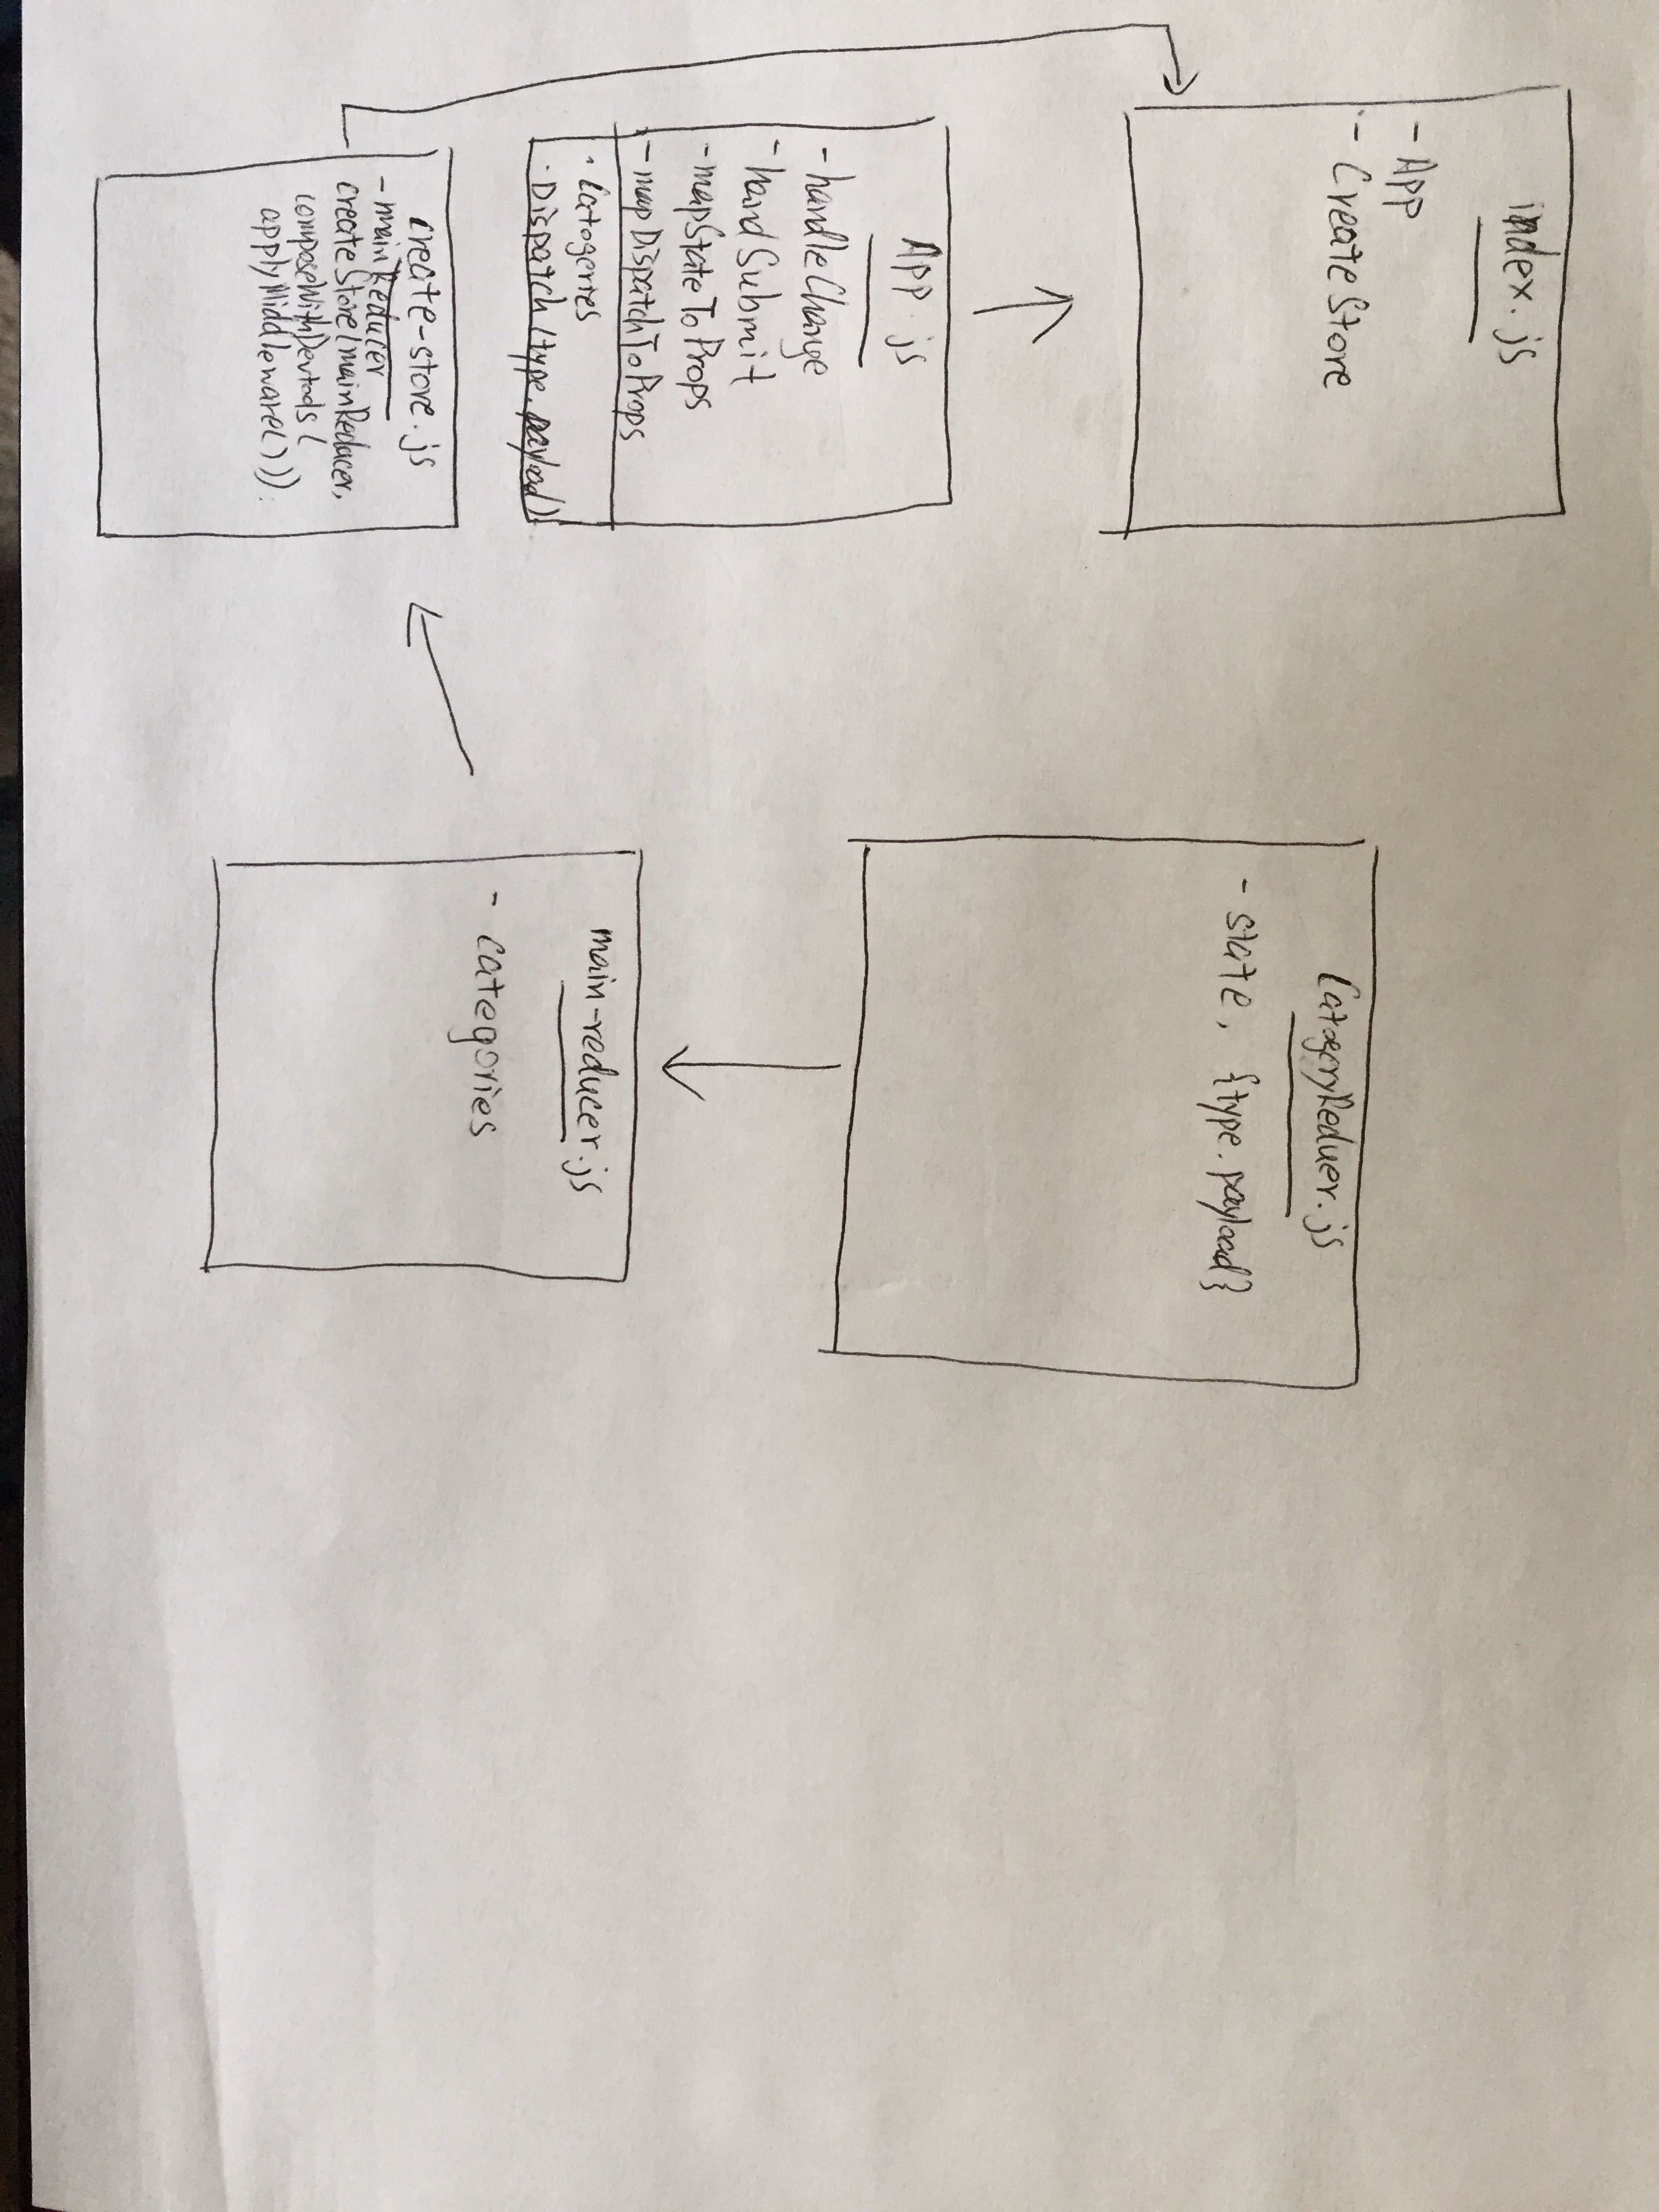 index.js
- App
- CreateStore
App.js
- handleChange
- handSubmit
- mapStateToProps
- mapDispatchToProps
· Catogeries
· Dispatch(type.payload)
create-store.js
- mainReducer
createStore(mainReducer,
composeWithDevtools(
applyMiddleware()));
CatogeryReduer.js
- state, {type.payload}
main-reducer.js
- categories